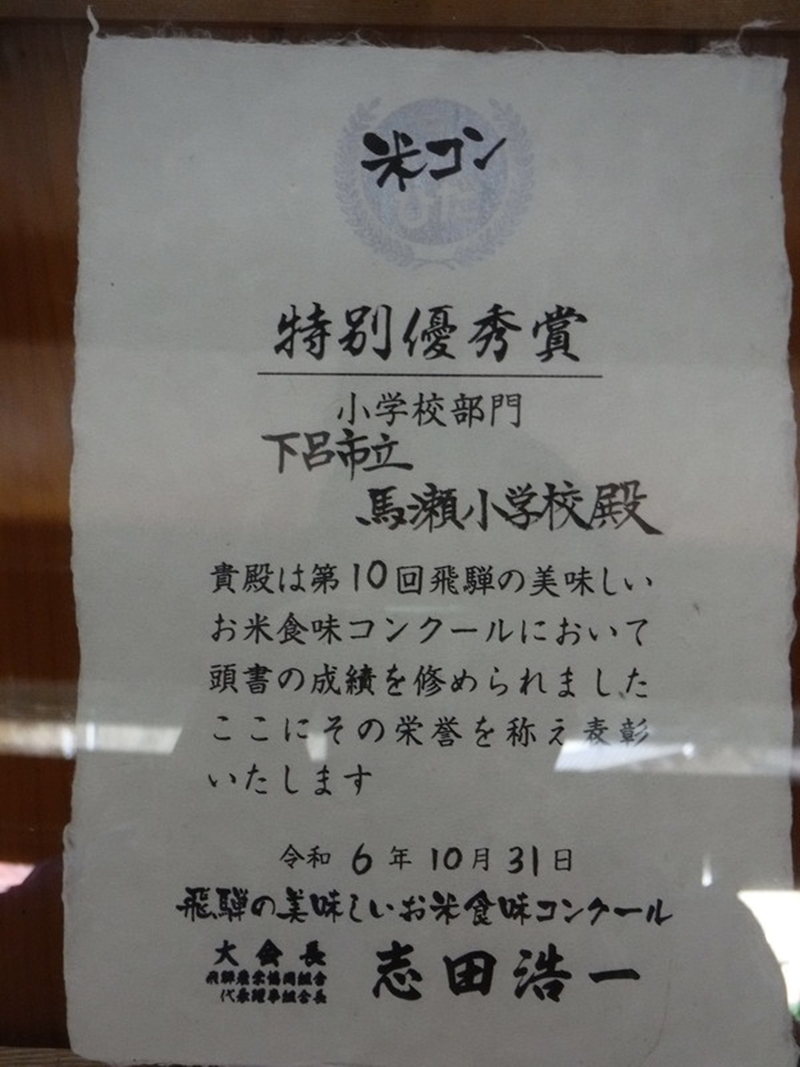 米コン
ひだ
特別優秀賞
小学校部門
下呂市立
馬瀬小学校殿
貴殿は第10回飛騨の美味しい
お米食味コンクールにおいて
頭書の成績を修められました
ここにその栄誉を称え表彰
いたします
令和6年10月31日
飛騨の美味しいお米食味コンクール
大会長
飛騨農業協同組合
代表理事組合長
志田浩一